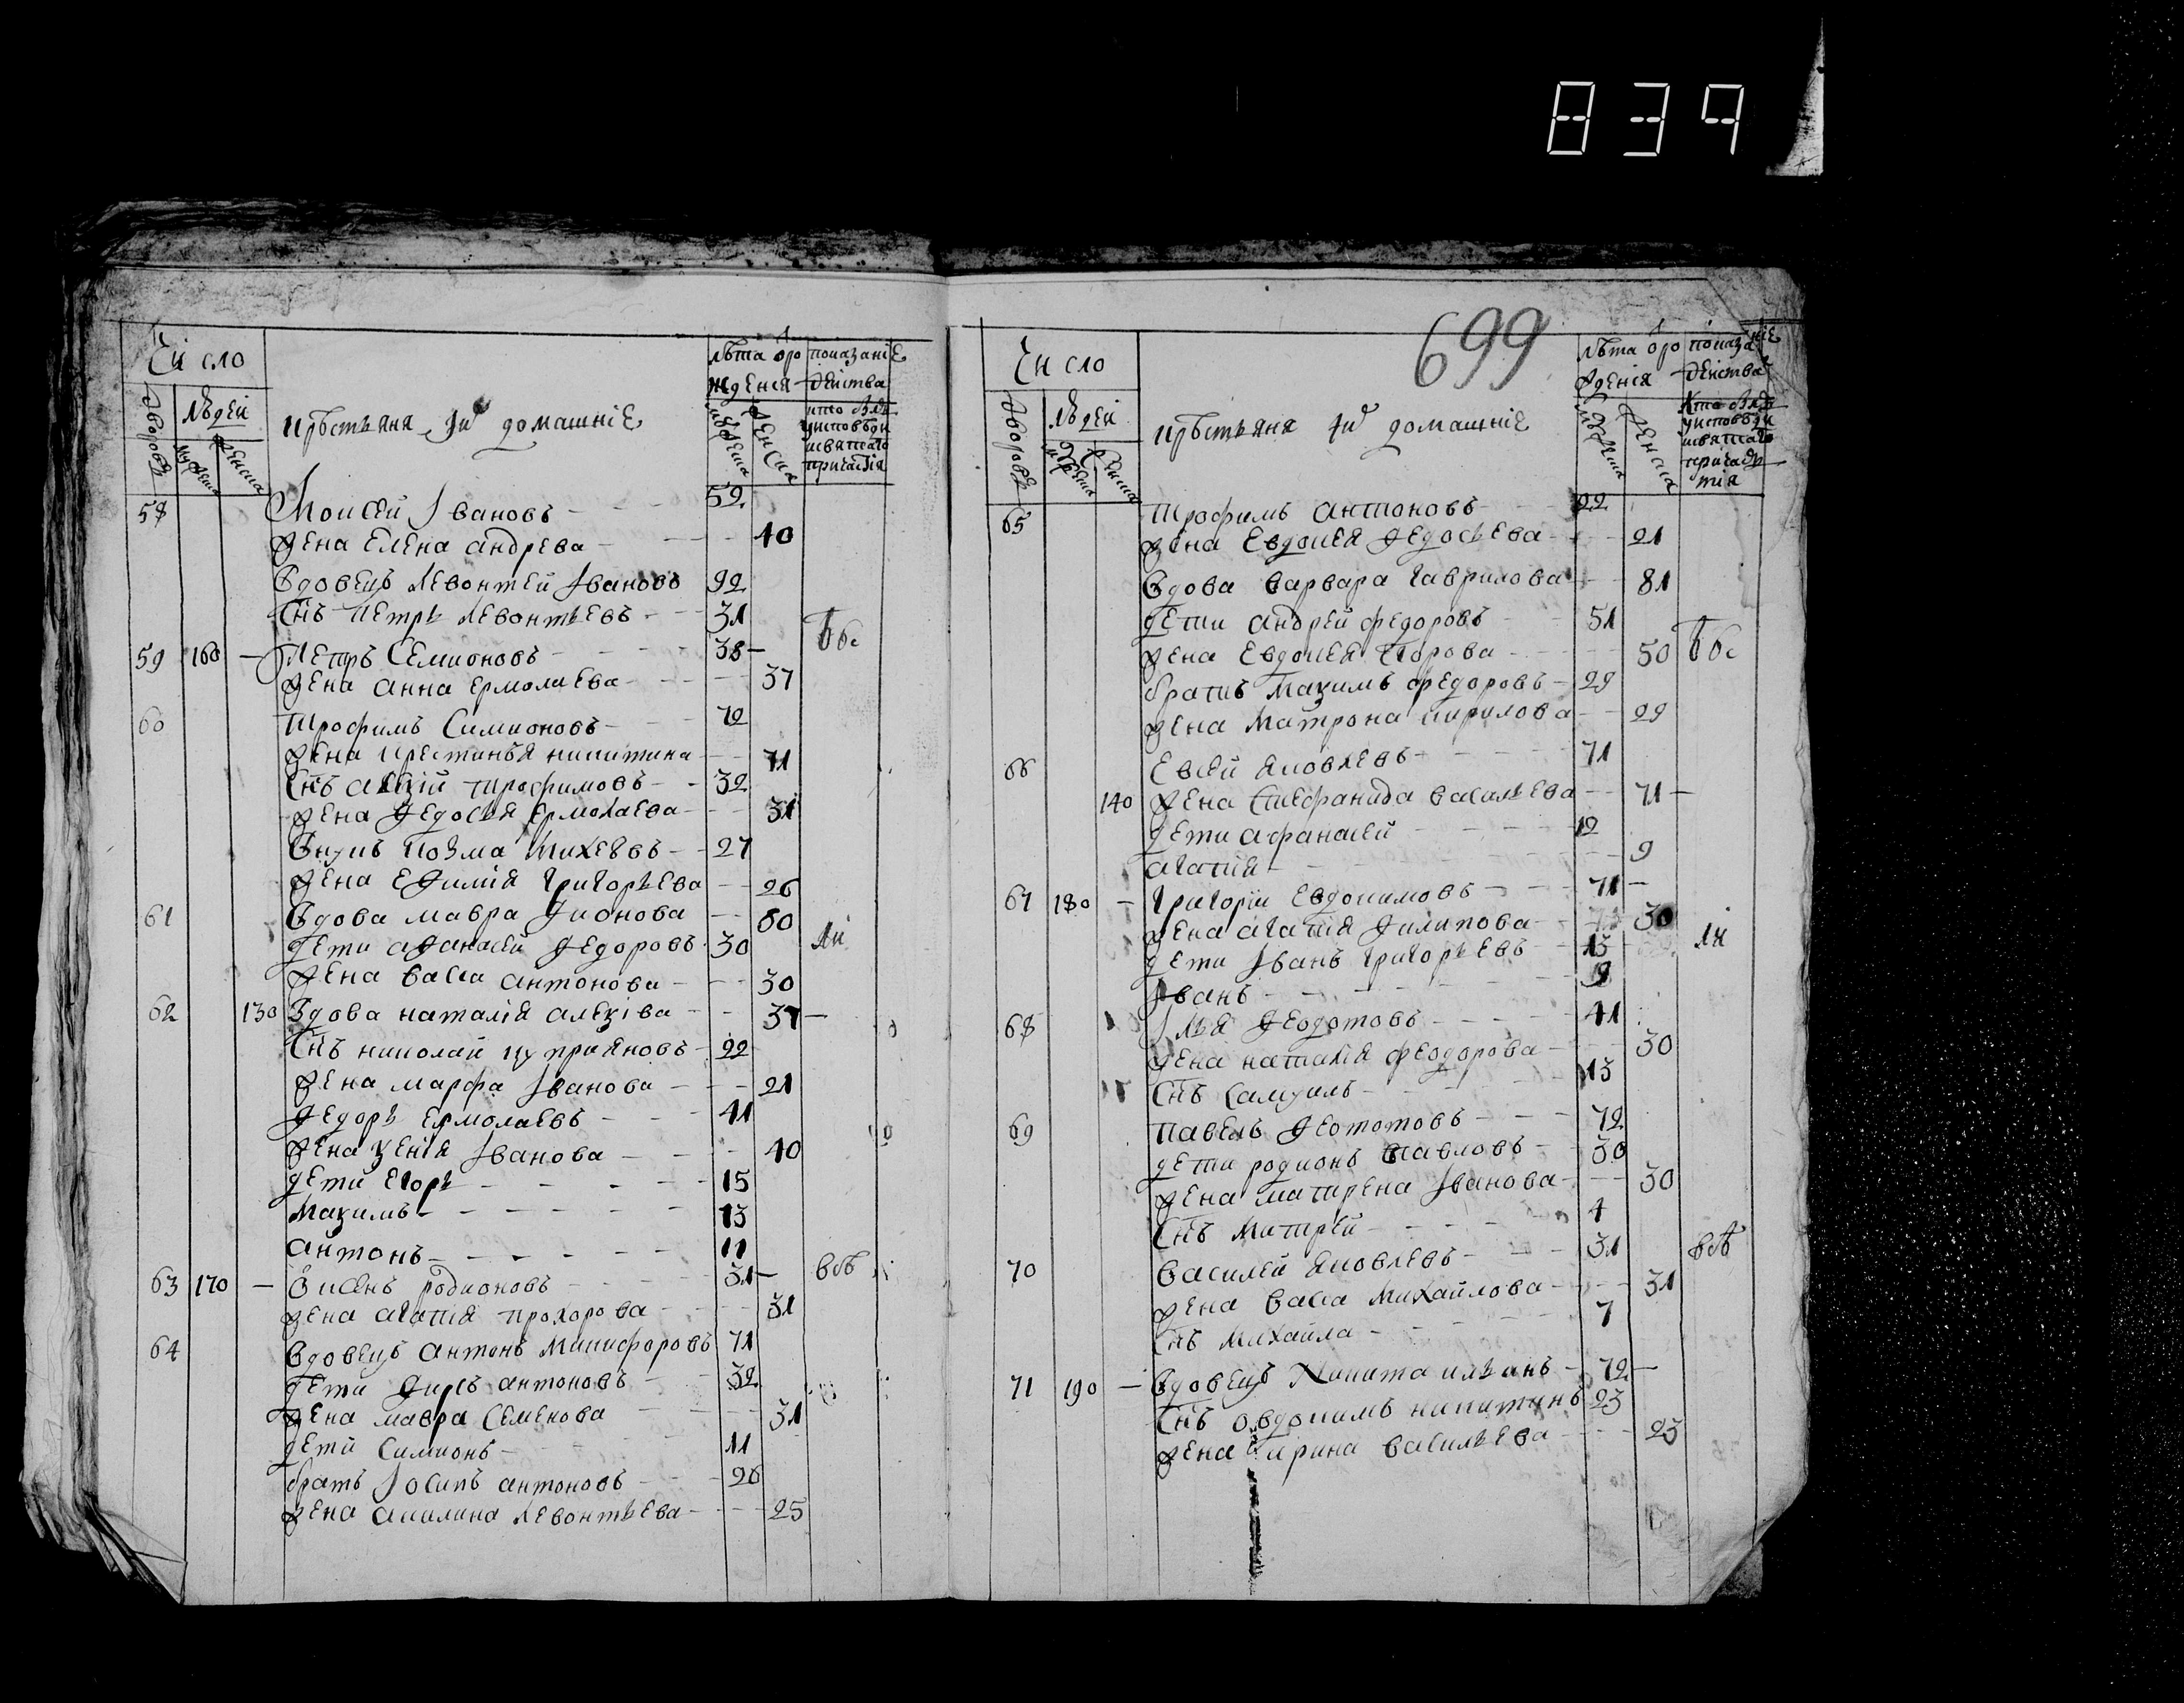 839
699
Число
Лѣта ѿро
показаніе
дворовъ
людей
мужеска
женска
крѣстьяня и домашніе
ждения
действа
мужеска
женска
кто былъ
у исповѣди
и святаго
причастія
58 Моисей Івановъ 52
жена Елена Андрева 40
вдовецъ Левонтей Івановъ 92
снъ Петръ Левонтьевъ 31
59 160 Петръ Семионовъ 38
жена Анна Ермолаева 37
60 Трофимъ Симионовъ 72
жена Крестинья Никитина 71
снъ Алѯій Трофимовъ 32
жена Ѳедосья Ермолаева 31
внукъ Козма Михеевъ 27
жена Еѳимія Григорьева 26
61 вдова Мавра Ѳионова 80
дети Аѳанасей Ѳедоровъ 30
жена Васса Антонова 30
62 130 вдова Наталія Алеѯіва 37
снъ Николай Куприяновъ 22
жена Марфа Іванова 21
Ѳедоръ Ермолаевъ 41
жена Ѯенія Іванова 40
дети Егоръ 15
Маѯимъ 13
Антонъ 11
63 170 Ѳисенъ Родионовъ 31
жена Агапія Прохорова 31
64 вдовецъ Антонъ Микифоровъ 71
дети Ѳирсъ Антоновъ 32
жена Мавра Семенова 31
дети Симионъ 11
братъ Іосипъ Антоновъ 26
жена Акилина Левонтьева 25
Число
Лѣта ѿро
показаніе
дворовъ
людей
мужеска
женска
крѣстьяня и домашніе
ждения
действа
мужеска
женска
кто былъ
у исповѣди
и святаго
причас
тія
65 Трофимъ Антоновъ 22
жена Евдокея Ѳедосьева 21
вдова Варвара Гаврилова 81
дети Андрей Федоровъ 51
жена Евдокея Егорова 50
братъ Маѯимъ Федоровъ 29
жена Матрона Кирилова 29
66 Евсей Яковлевъ 71
140 жена Стефанида Васильева 71
дети Афанасей 12
Агапия 9
67 180 Григорій Евдокимовъ 71
жена Агапія Ѳилипова 30
дети Іванъ Григорьевъ 13
Іванъ 9
68 Ілья Ѳеодотовъ 41
жена Наталія Феодорова 30
снъ Самуилъ 13
69 Павелъ Ѳеототовъ 72
дети Родионъ Павловъ 30
жена Матрена Іванова 30
снъ Митрей 4
70 Василей Яковлевъ 31
жена Васса Михайлова 31
снъ Михайла 7
71 190 вдовецъ Никита Ильинъ 72
снъ Овдокимъ Никитинъ 23
жена Ирина Васильева 23